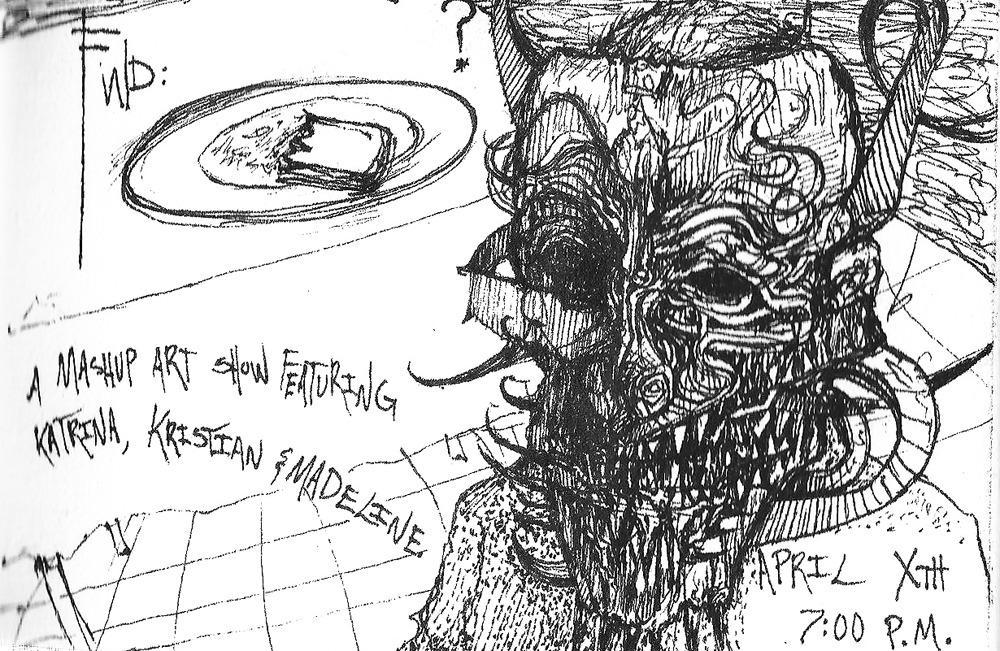 FIND:
?
A MASHUP ART SHOW FEATURING
KATRINA, KRISTIAN & MADELINE
APRIL XTH
7:00 P.M.